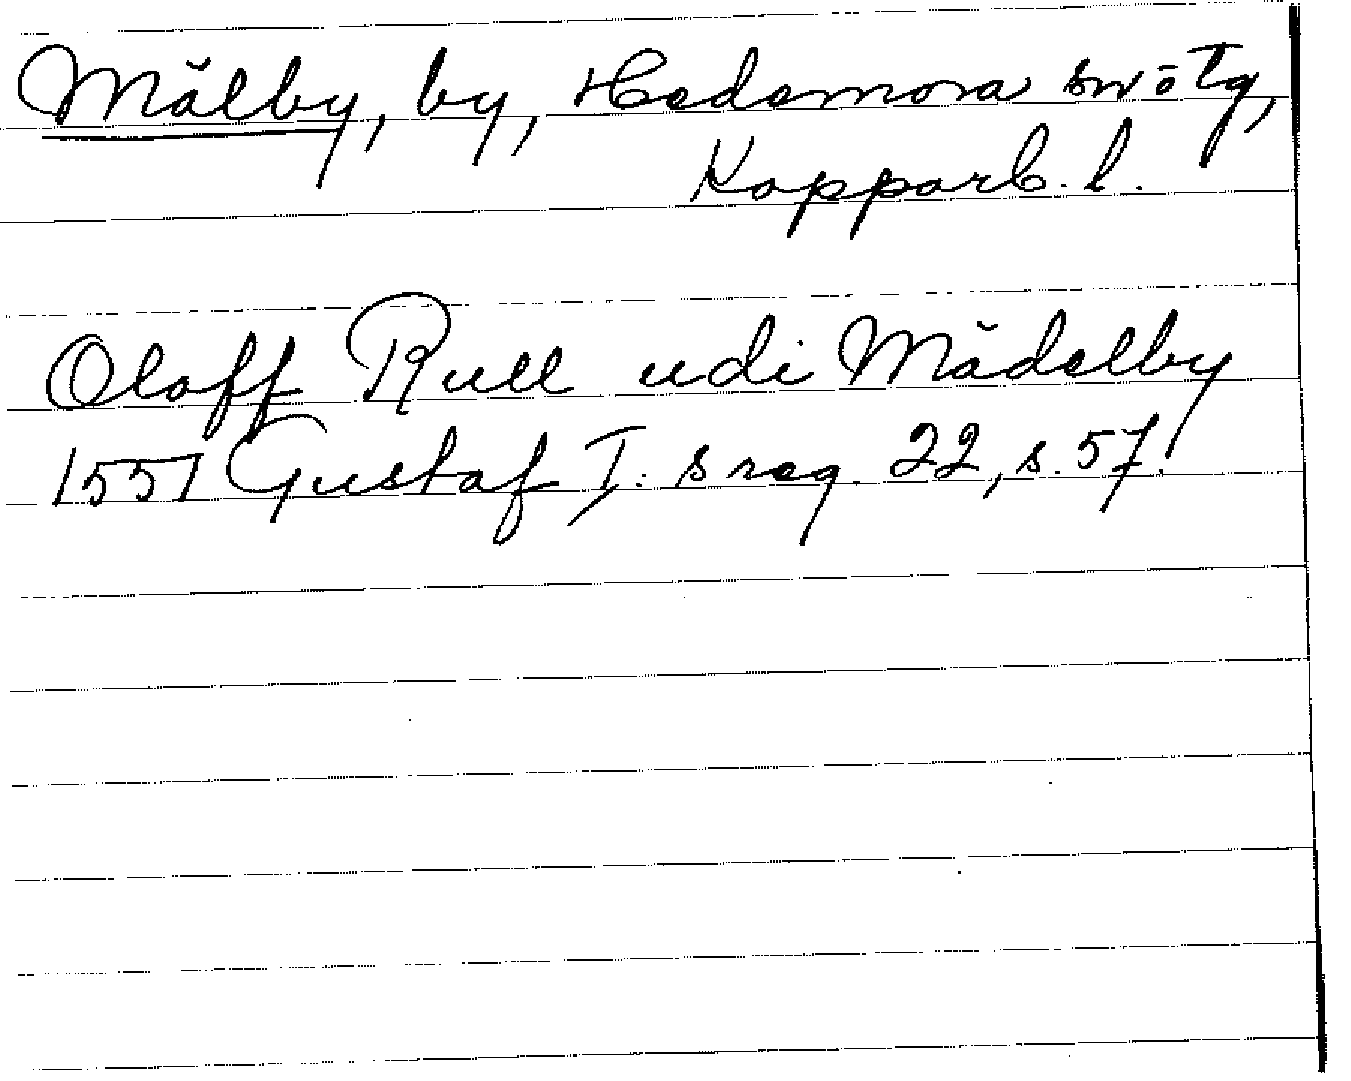 Målby, by, Hedemora sn o tg,
Kopparb. l.
Oloff Rull udi Mådelby
1551 Gustaf I:s reg. 22, s. 57.